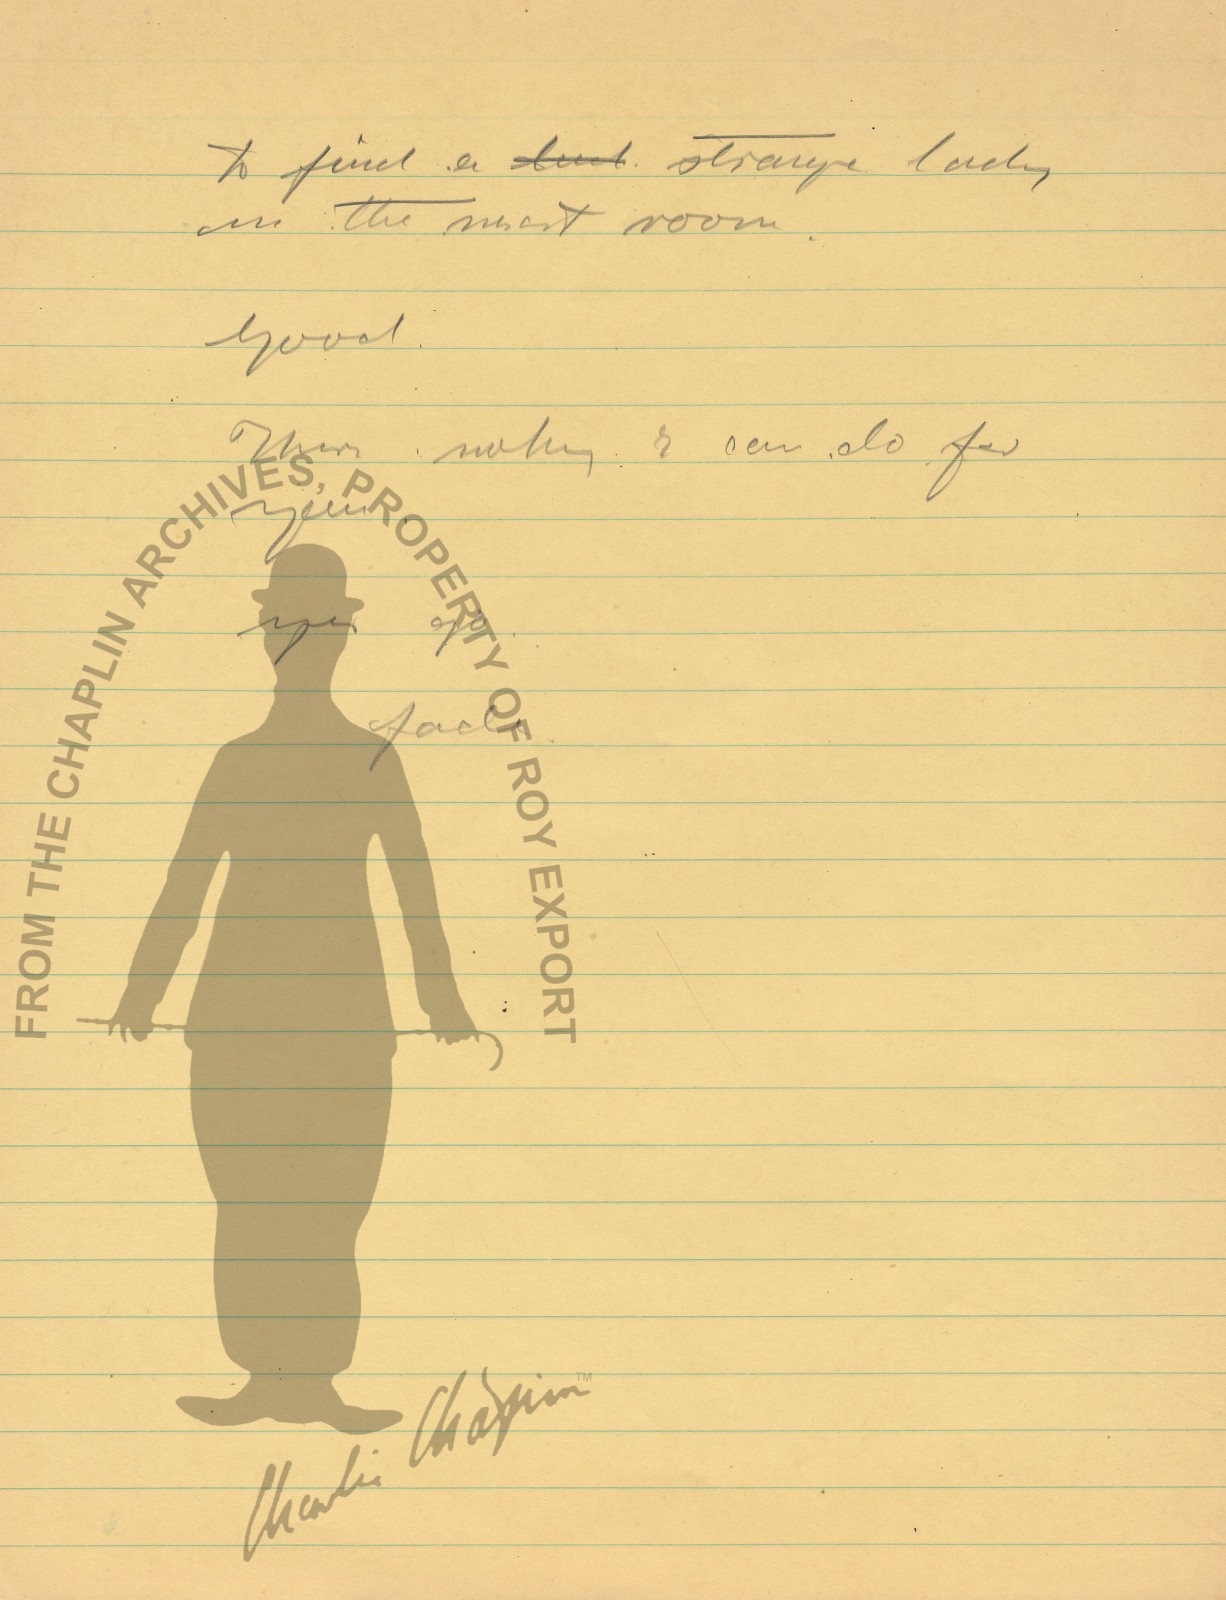 to find a ~~lad~~ strange lady
in the next room.
Good.
Theres nothing I can do for
you
yes go
fade
FROM THE CHAPLIN ARCHIVES, PROPERTY OF ROY EXPORT
Charlie Chaplin™